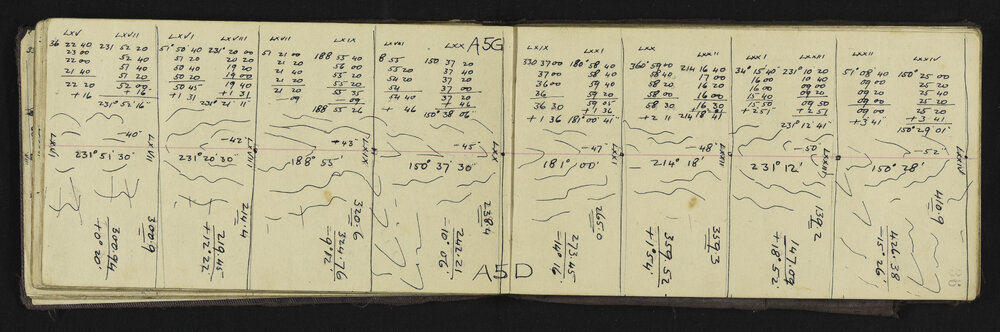 LXV LXVII
36 22 40 231 52 20
23 00 52 40
22 00 51 40
21 40 51 20
22 20 52 00
+ 16 + 16
231° 52' 16"
-40'
LXVI
LXVII
231° 51' 30"
300.9
300.94
+0° 20'
LXVI LXVIII
51° 50 40 231° 20 00
51 20 20 20
50 40 19 20
50 20 19 00
50 45 19 40
+1 31 +1 31
231° 21' 11"
-42'
LXVIII
231° 20' 30"
214.4
219.45
+12° 22'
LXVII LXIX
51 21 00 188 55 40
21 20 56 00
21 40 55 20
21 20 55 20
21 20 55 35
-09 -09
188 55 26
+43'
LXIX
188° 55'
320.6
324.76
-9° 12'
LXVIII LXX
8 55 150 37 20
55 20 37 40
54 20 37 20
54 37 00
54 40 37 20
+ 46 + 46
150° 38' 06"
-45'
LXX
150° 37' 30"
238.4
242.21
-10° 06'
A5G
A5D
LXIX LXXI
330 37 00 180° 58 40
37 00 58 40
36 00 59 40
36 59 20
36 30 59 05
+1 36 +1 36
181° 00' 41"
-47'
LXXI
181° 00'
265.0
273.45
-14° 16'
LXX LXXII
360° 59 00 214 16 40
58 40 17 00
58 20 16 20
58 00 16 00
58 30 16 30
+2 11 214 18' 41
-48'
LXXII
214° 18'
359.3
359.52
+1° 54'
LXXI LXXIII
34° 15' 40" 231° 10 20
16 00 10 40
16 00 09 00
15 40 09 20
15 50 09 50
+2 51 +2 51
231° 12' 41"
-50'
LXXIII
231° 12'
139.2
147.09
+18° 52'
LXXII LXXIV
51° 08 40 150° 25 00
09 20 26 00
09 00 25 20
09 20 25 20
09 00 25 20
+3 41 +3 41
150° 29' 01"
-52'
LXXIV
150° 28'
410.9
426.38
-15° 26'
36